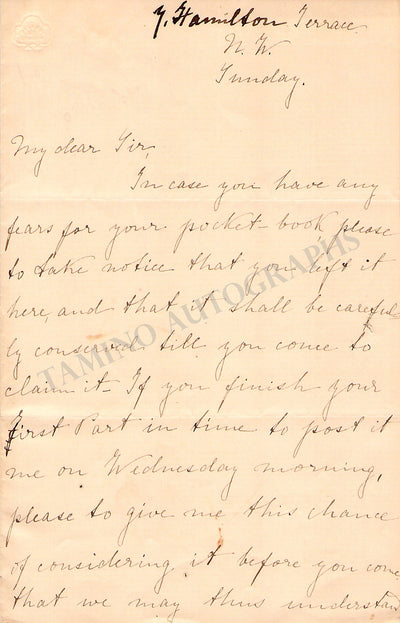 7. Hamilton Terrace
N. W.
Sunday.
My dear Sir,
In case you have any
fears for your pocket-book please
to take notice that you left it
here, and that it shall be careful-
ly conserved till you come to
claim it_ If you finish your
first Part in time to post it
me on Wednesday morning,
please to give me this chance
of considering it before you come,
that we may thus understand
TAMINO AUTOGRAPHS